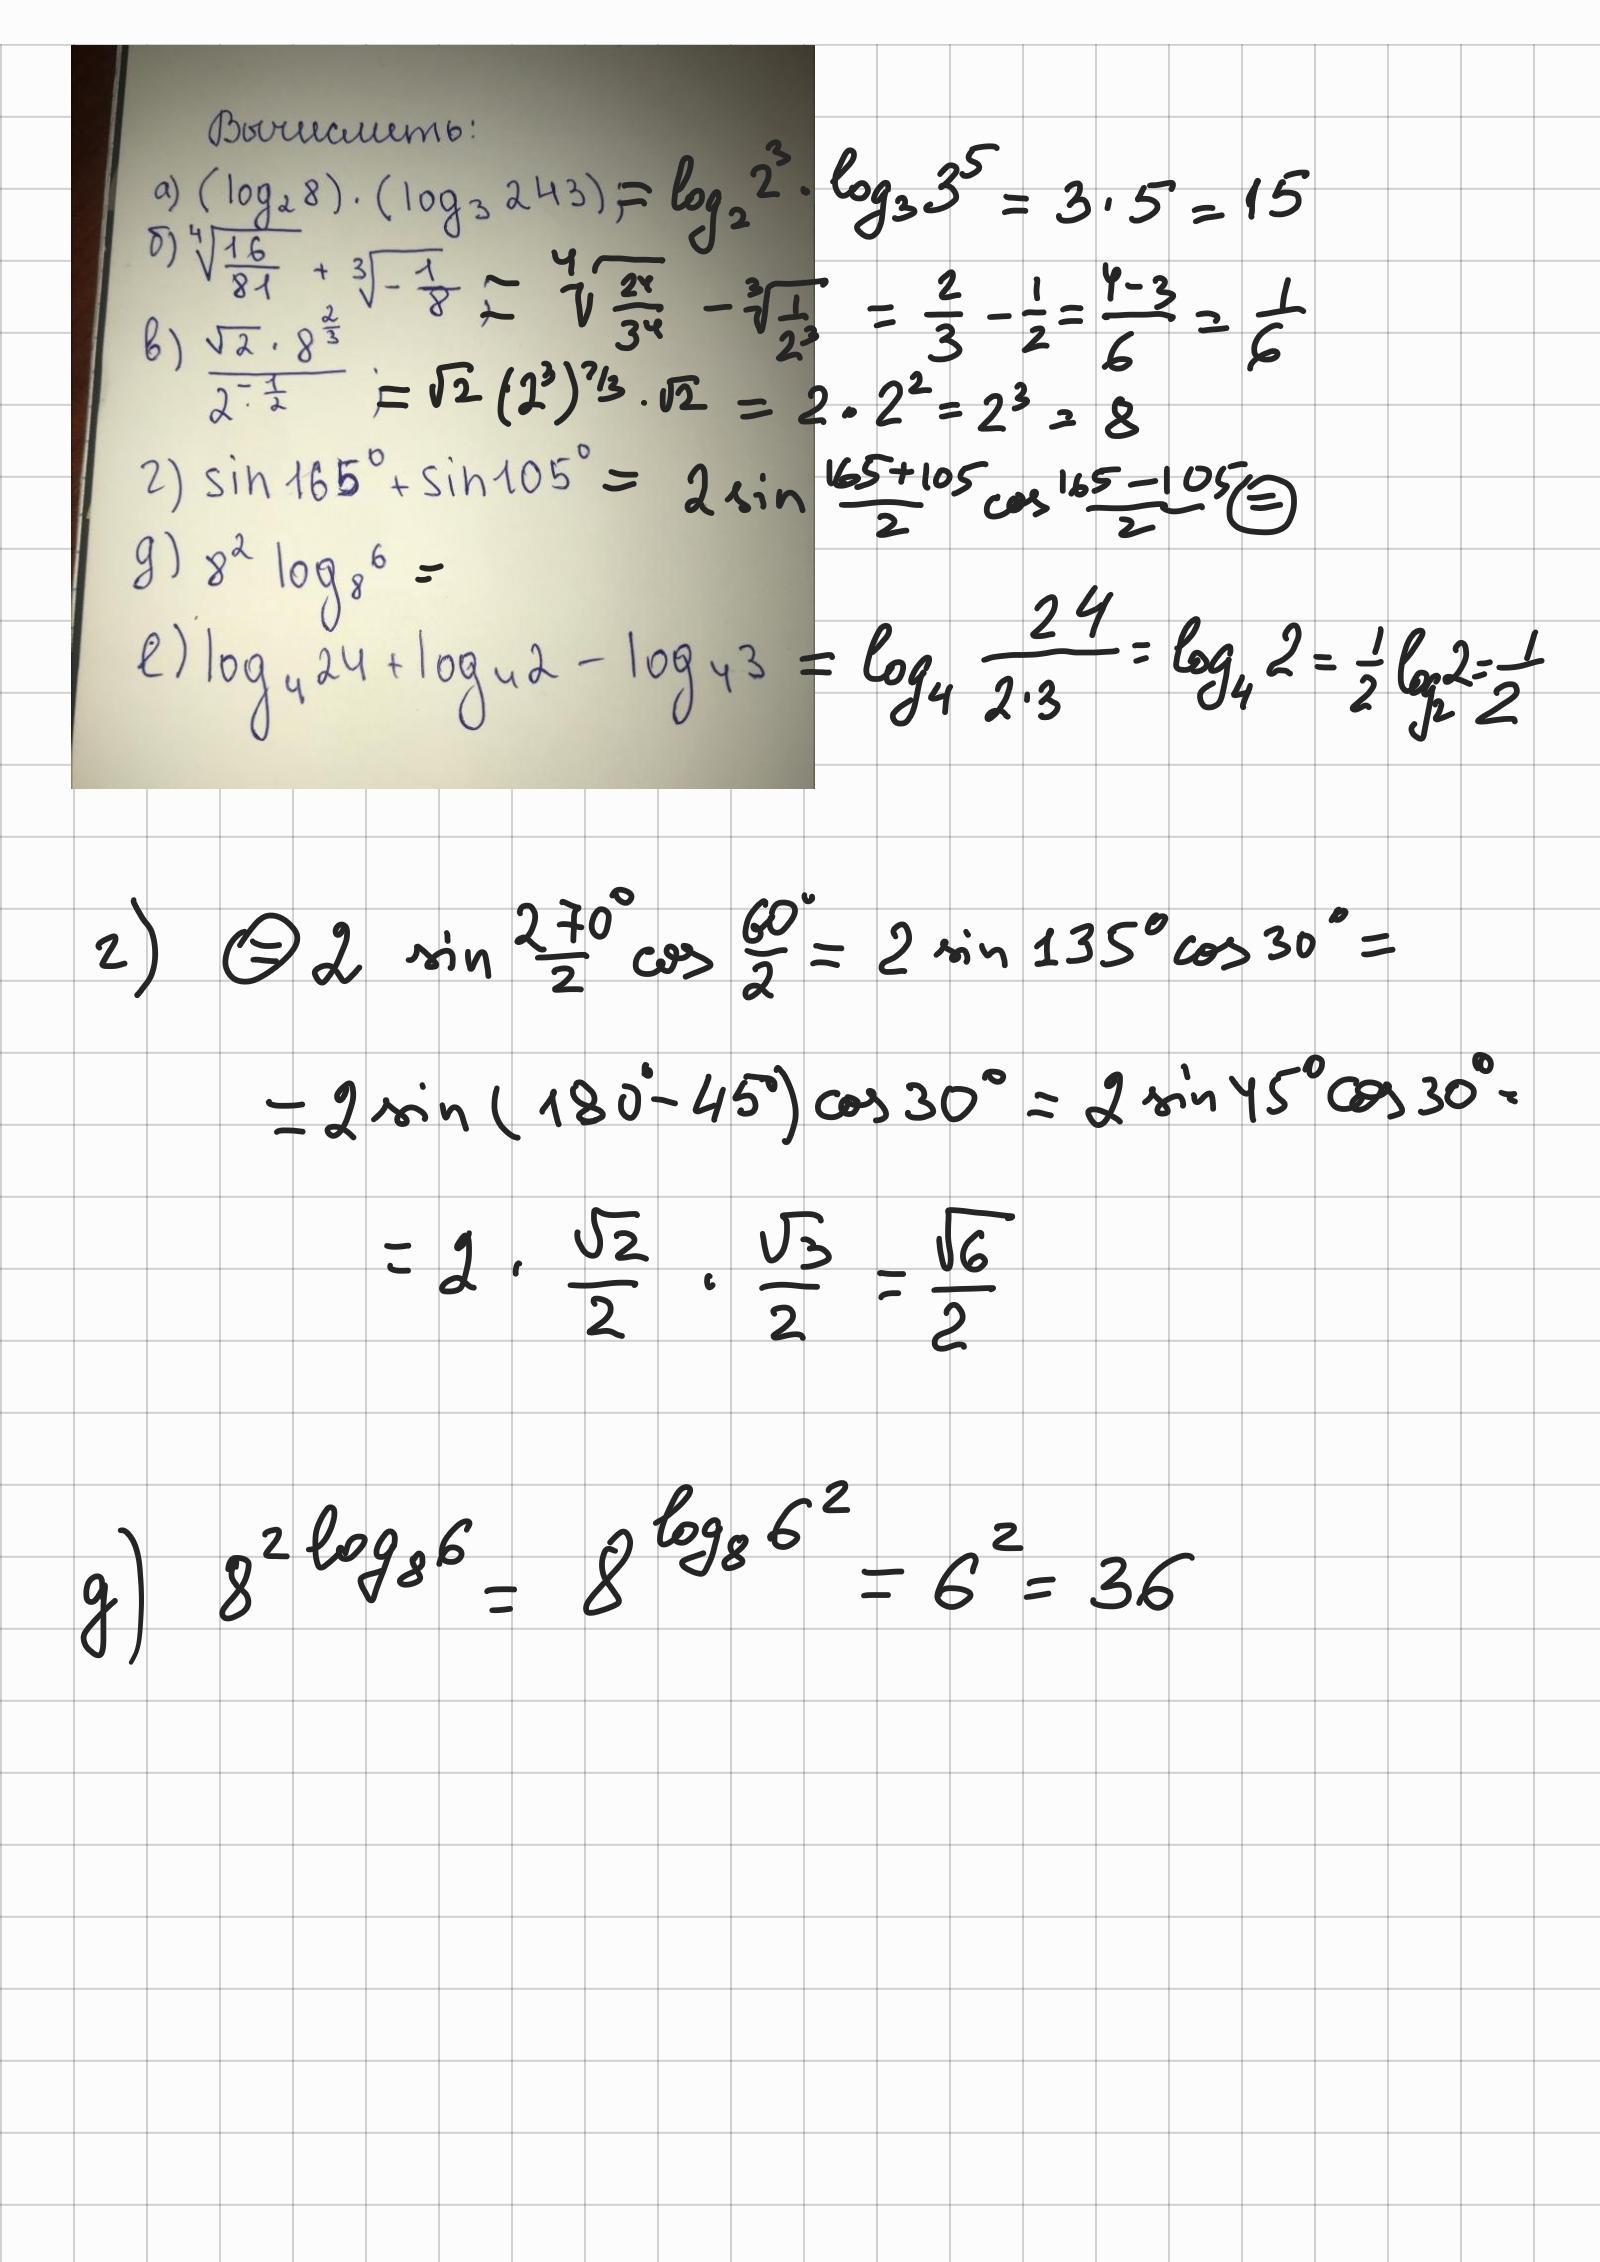 Вычислить:
а) (log₂8)·(log₃243); = log₂2³ · log₃3⁵ = 3·5 = 15
б) ⁴√(16/81) + ³√(-1/8); = ⁴√(2⁴/3⁴) - ³√(1/2³) = 2/3 - 1/2 = (4-3)/6 = 1/6
в) (√2 · 8^(2/3))/(2^(-1/2)); = √2 (2³)^(2/3) · √2 = 2·2² = 2³ = 8
г) sin165° + sin105° = 2 sin (165+105)/2 cos (165-105)/2 ⊜
д) 8² log₈⁶ =
е) log₄24 + log₄2 - log₄3 = log₄ 24/(2·3) = log₄2 = 1/2 log₂2 = 1/2
г) ⊜ 2 sin 270°/2 cos 60°/2 = 2 sin 135° cos 30° =
= 2 sin(180° - 45°) cos 30° = 2 sin 45° cos 30° =
= 2 · √2/2 · √3/2 = √6/2
д) 8^(2 log₈6) = 8^(log₈6²) = 6² = 36